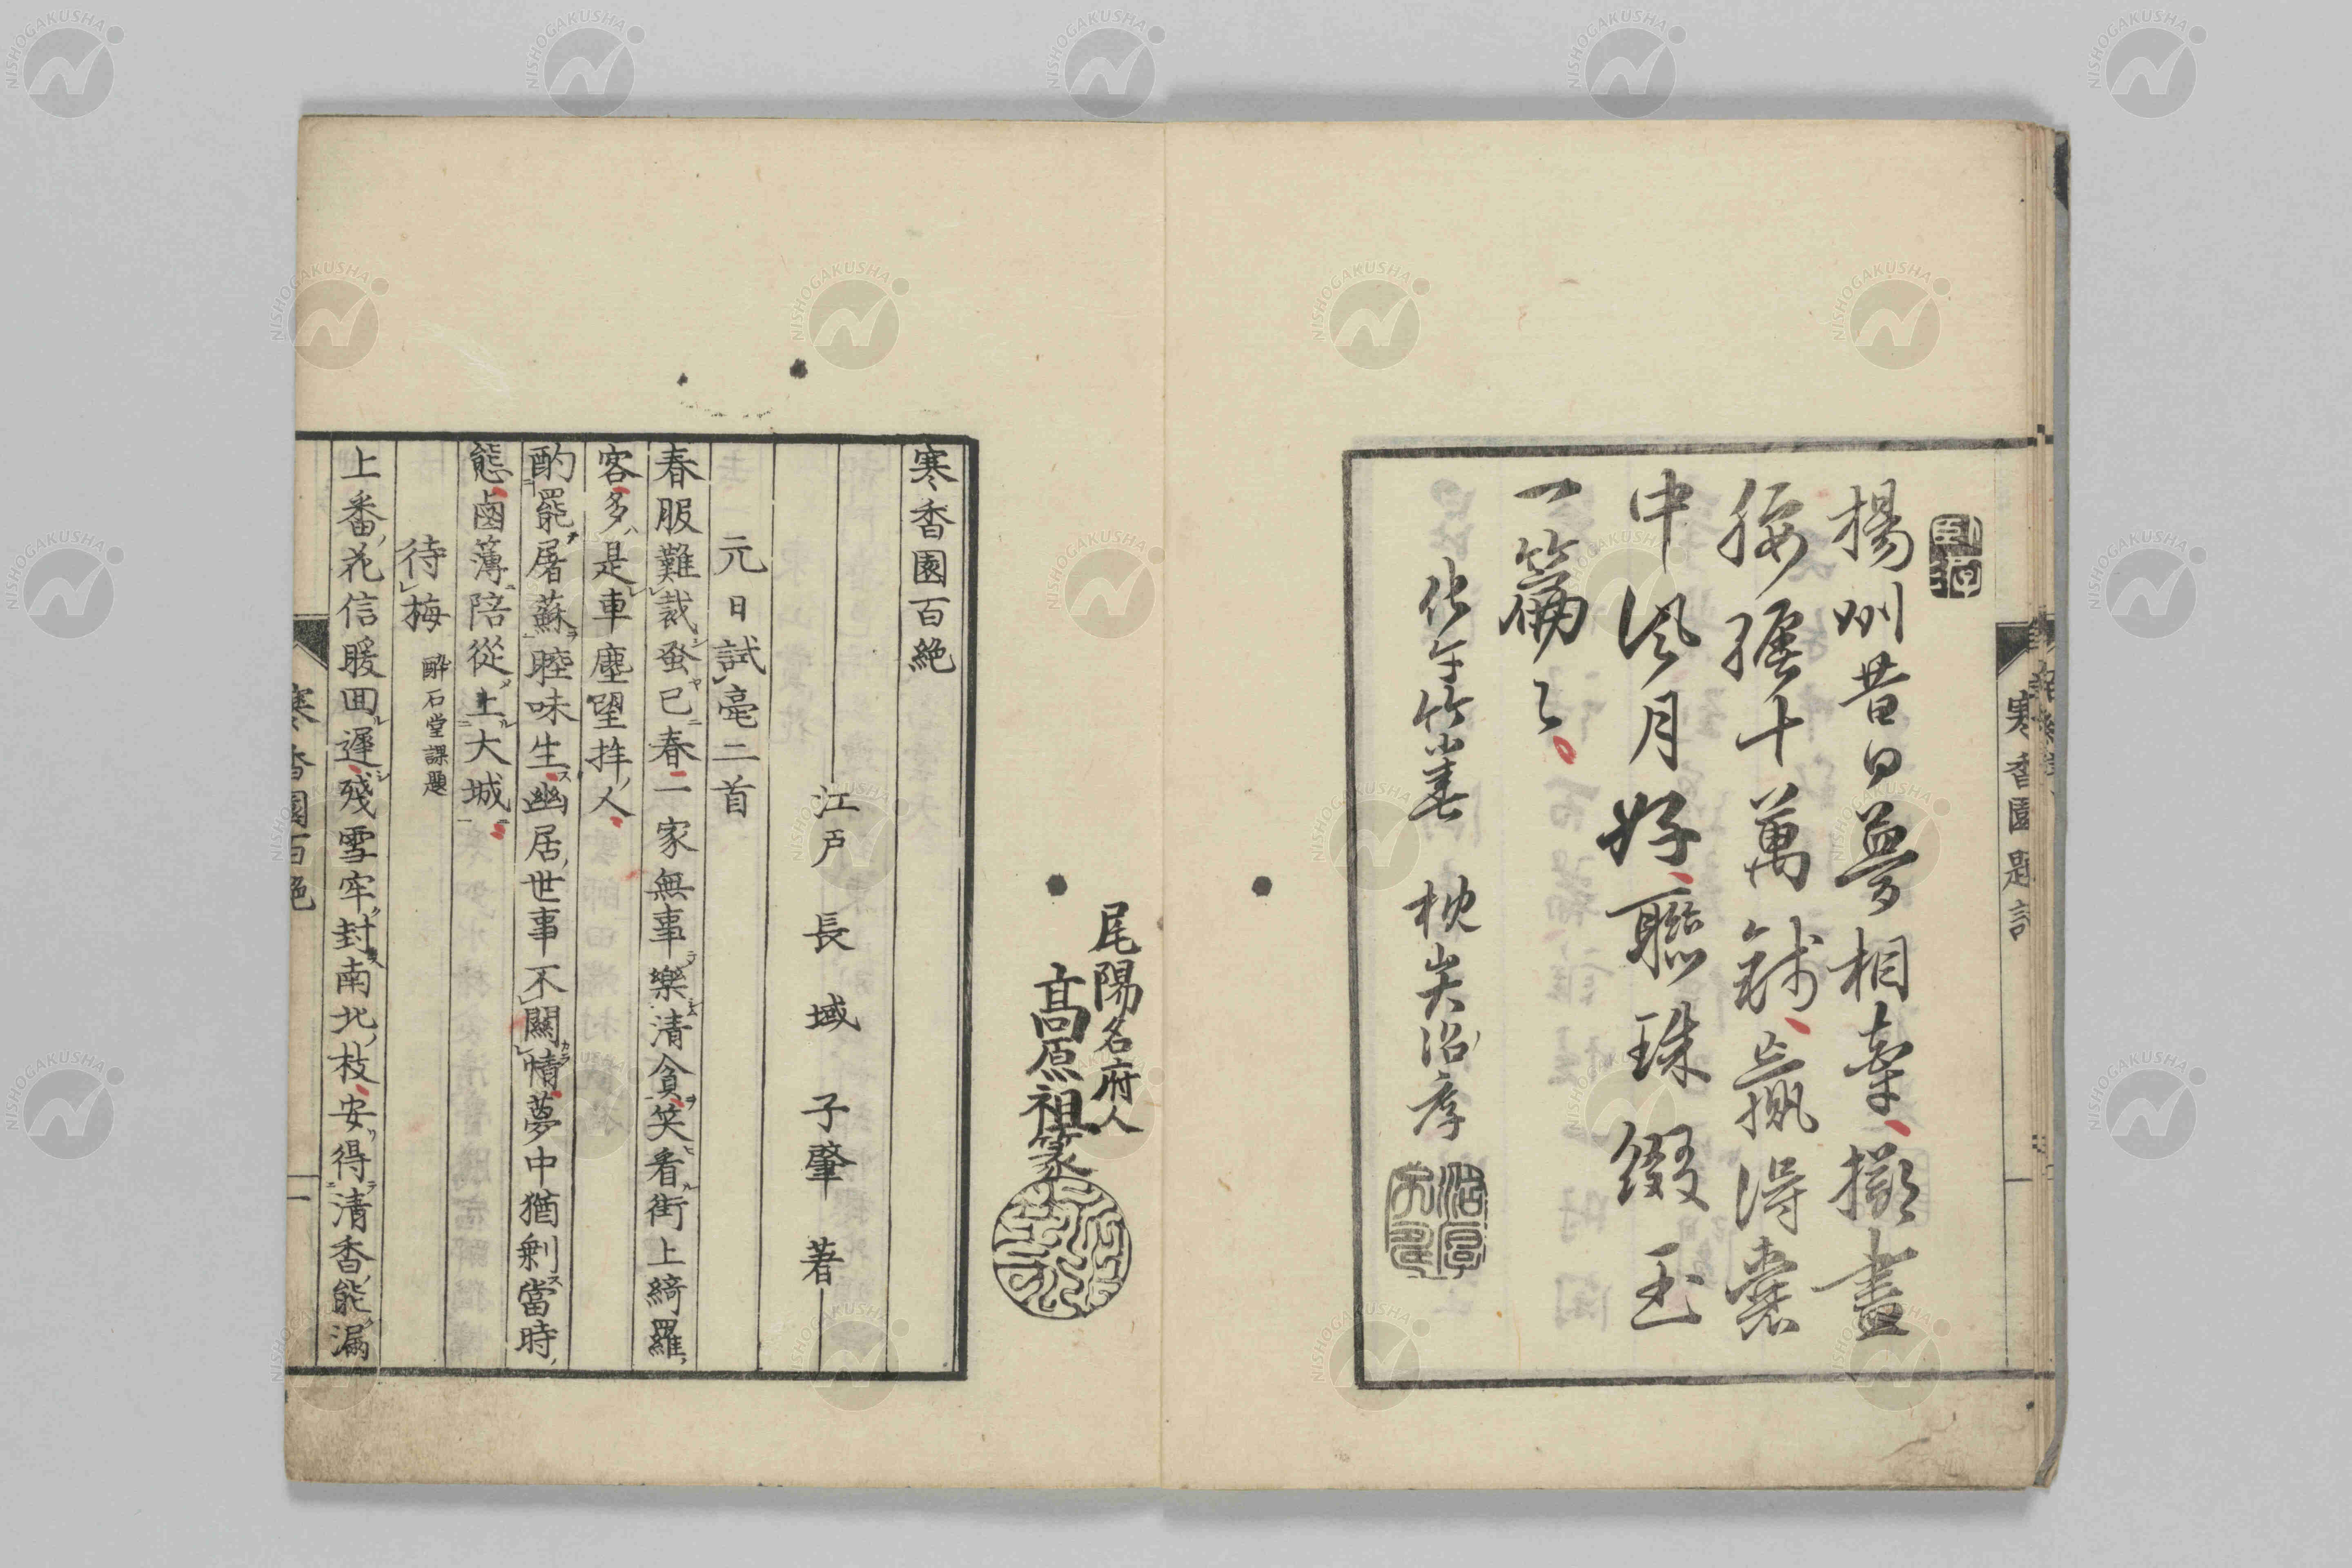 寒香園題詞
揚州昔日夢相牽擬盡
腰纏十萬錢贏得囊
中風月好聯珠綴玉
一篇〻
尾陽名府人
高原祖篆
寒香園百絶
江戸 長域子肇 著
元日試毫二首
春服難裁蚤已春一家無事樂清貧笑看街上綺羅
客多是車塵望拝人
酌罷屠蘇睦味生幽居世事不關情夢中猶剰當時
態鹵簿陪從上大城
待梅 酔石堂課題
上番花信暖囬遲殘雪牢封南北枝安得清香能漏
寒香園百絶
一
NISHOGAKUSHA